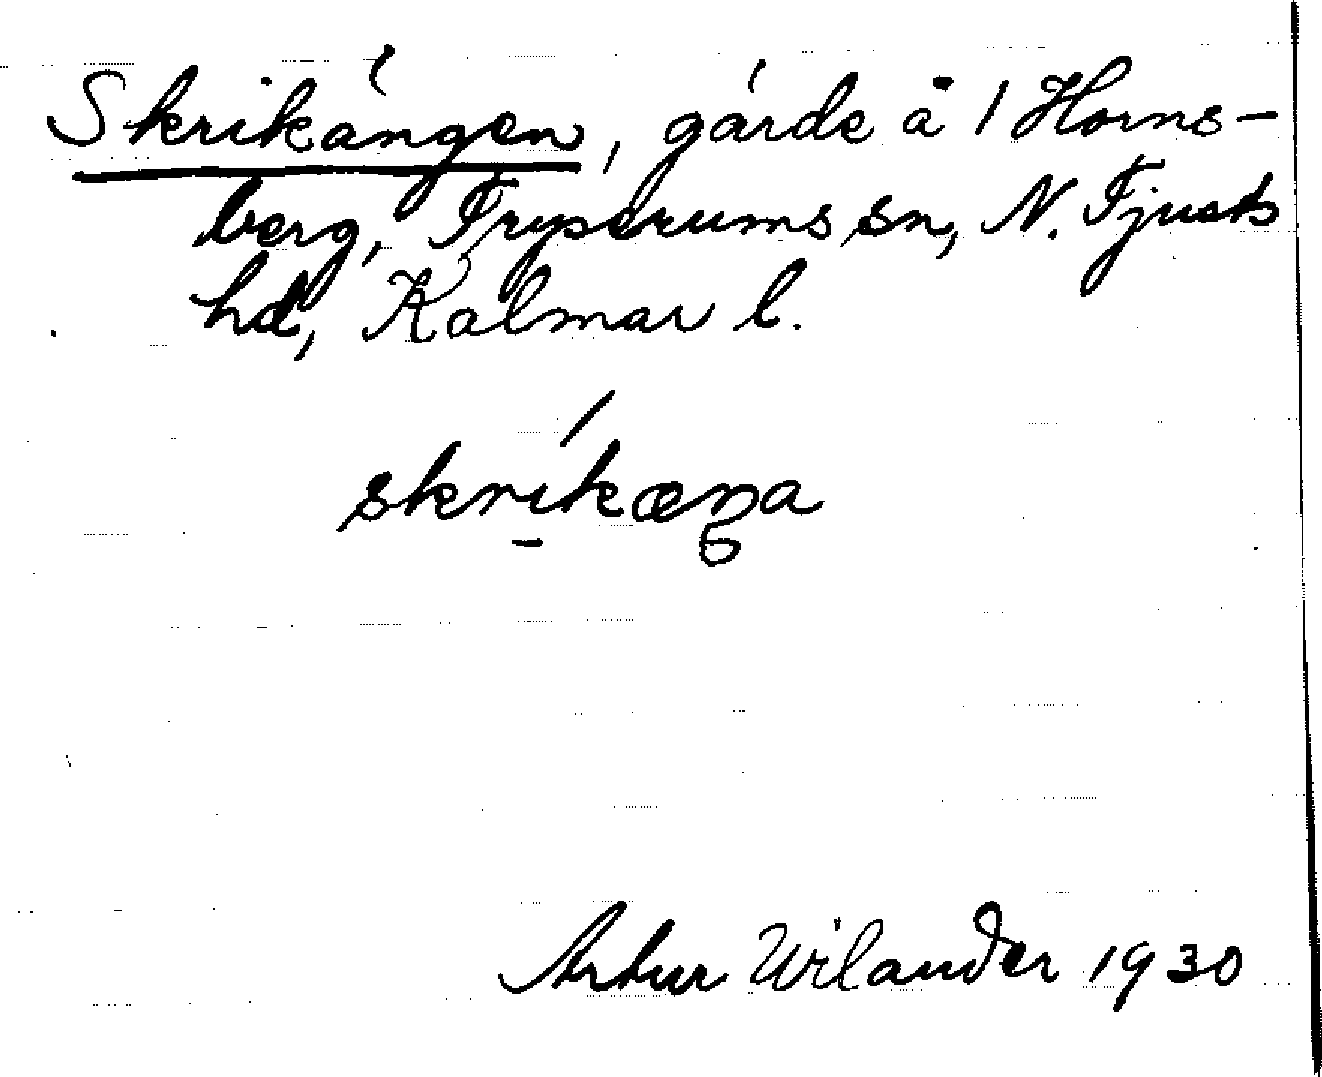 Skrikängen, gärde å 1 Horns-
berg, Tryserums sn, N. Tjusts
hd, Kalmar l.
skrikæŋa
Artur Wilander 1930